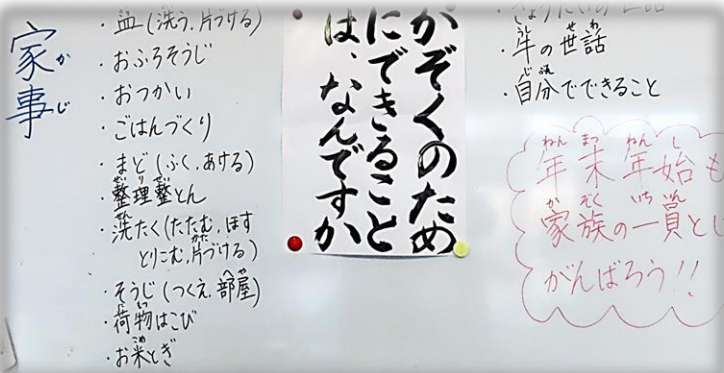 家事
・皿(洗う、片づける)
・おふろそうじ
・おつかい
・ごはんづくり
・まど(ふく、あける)
・整理整とん
・洗たく(たたむ、ほす
とりこむ、片づける)
・そうじ(つくえ、部屋)
・荷物はこび
・お米とぎ
かぞくのため
にできること
は、なんですか
・きょうだいの世話
・牛の世話
・自分でできること
年末年始も
家族の一員とし
がんばろう!!